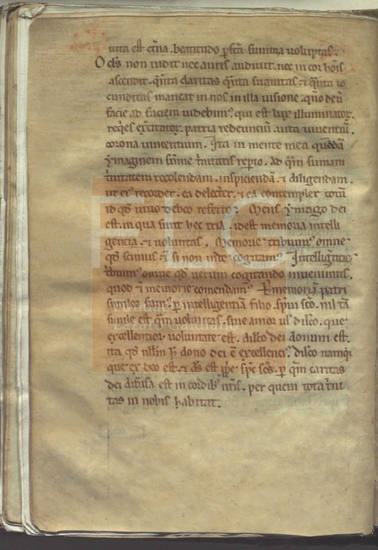 uita est eterna. beatitudo perfecta summa uoluptas.
Oculus non uidit nec auris audiuit. nec in cor hoīs
ascendit. quanta claritas quanta suauitas et quanta io
cunditas maneat in nos in illa uisione. quando deū
facie ad faciem uidebimus. qui est lux illuminator.
requies exercitator. patria redeuntiū uita uiuentiū.
corona uincentium. Ita in mente mea quandā
ymaginem summe trinitatis repio. ad quam summam
trinitatem recolendam. inspiciendā. et diligendam.
ut eius recorder. ea delecter. et ea contempler totum
id quod uiuo debeo referre. Mens ymago dei
est. in qua sunt hec tria. id est memoria intelli
gencia. et uoluntas. Memorie tribuimus omne
quod scimus etiā si non inde cogitamus. Intelligentie
tribuimus omne quod uerum cogitando inuenimus.
quod et memorie comendamus. Per memoriam patri
similes sumus. per intelligentiam filio. spiritui sancto. nil tā
simile est quam uoluntas. siue amor uel dilectio. que
excellentior uoluntate est. dilectio dei donum est.
ita quod nullum hoc dono dei est excellentius. dilectio namque
que ex deo est. et deus est proprie spiritus sanctus. per quem caritas
dei diffusa est in cordibus nostris. per quem tota trini
tas in nobis habitat.